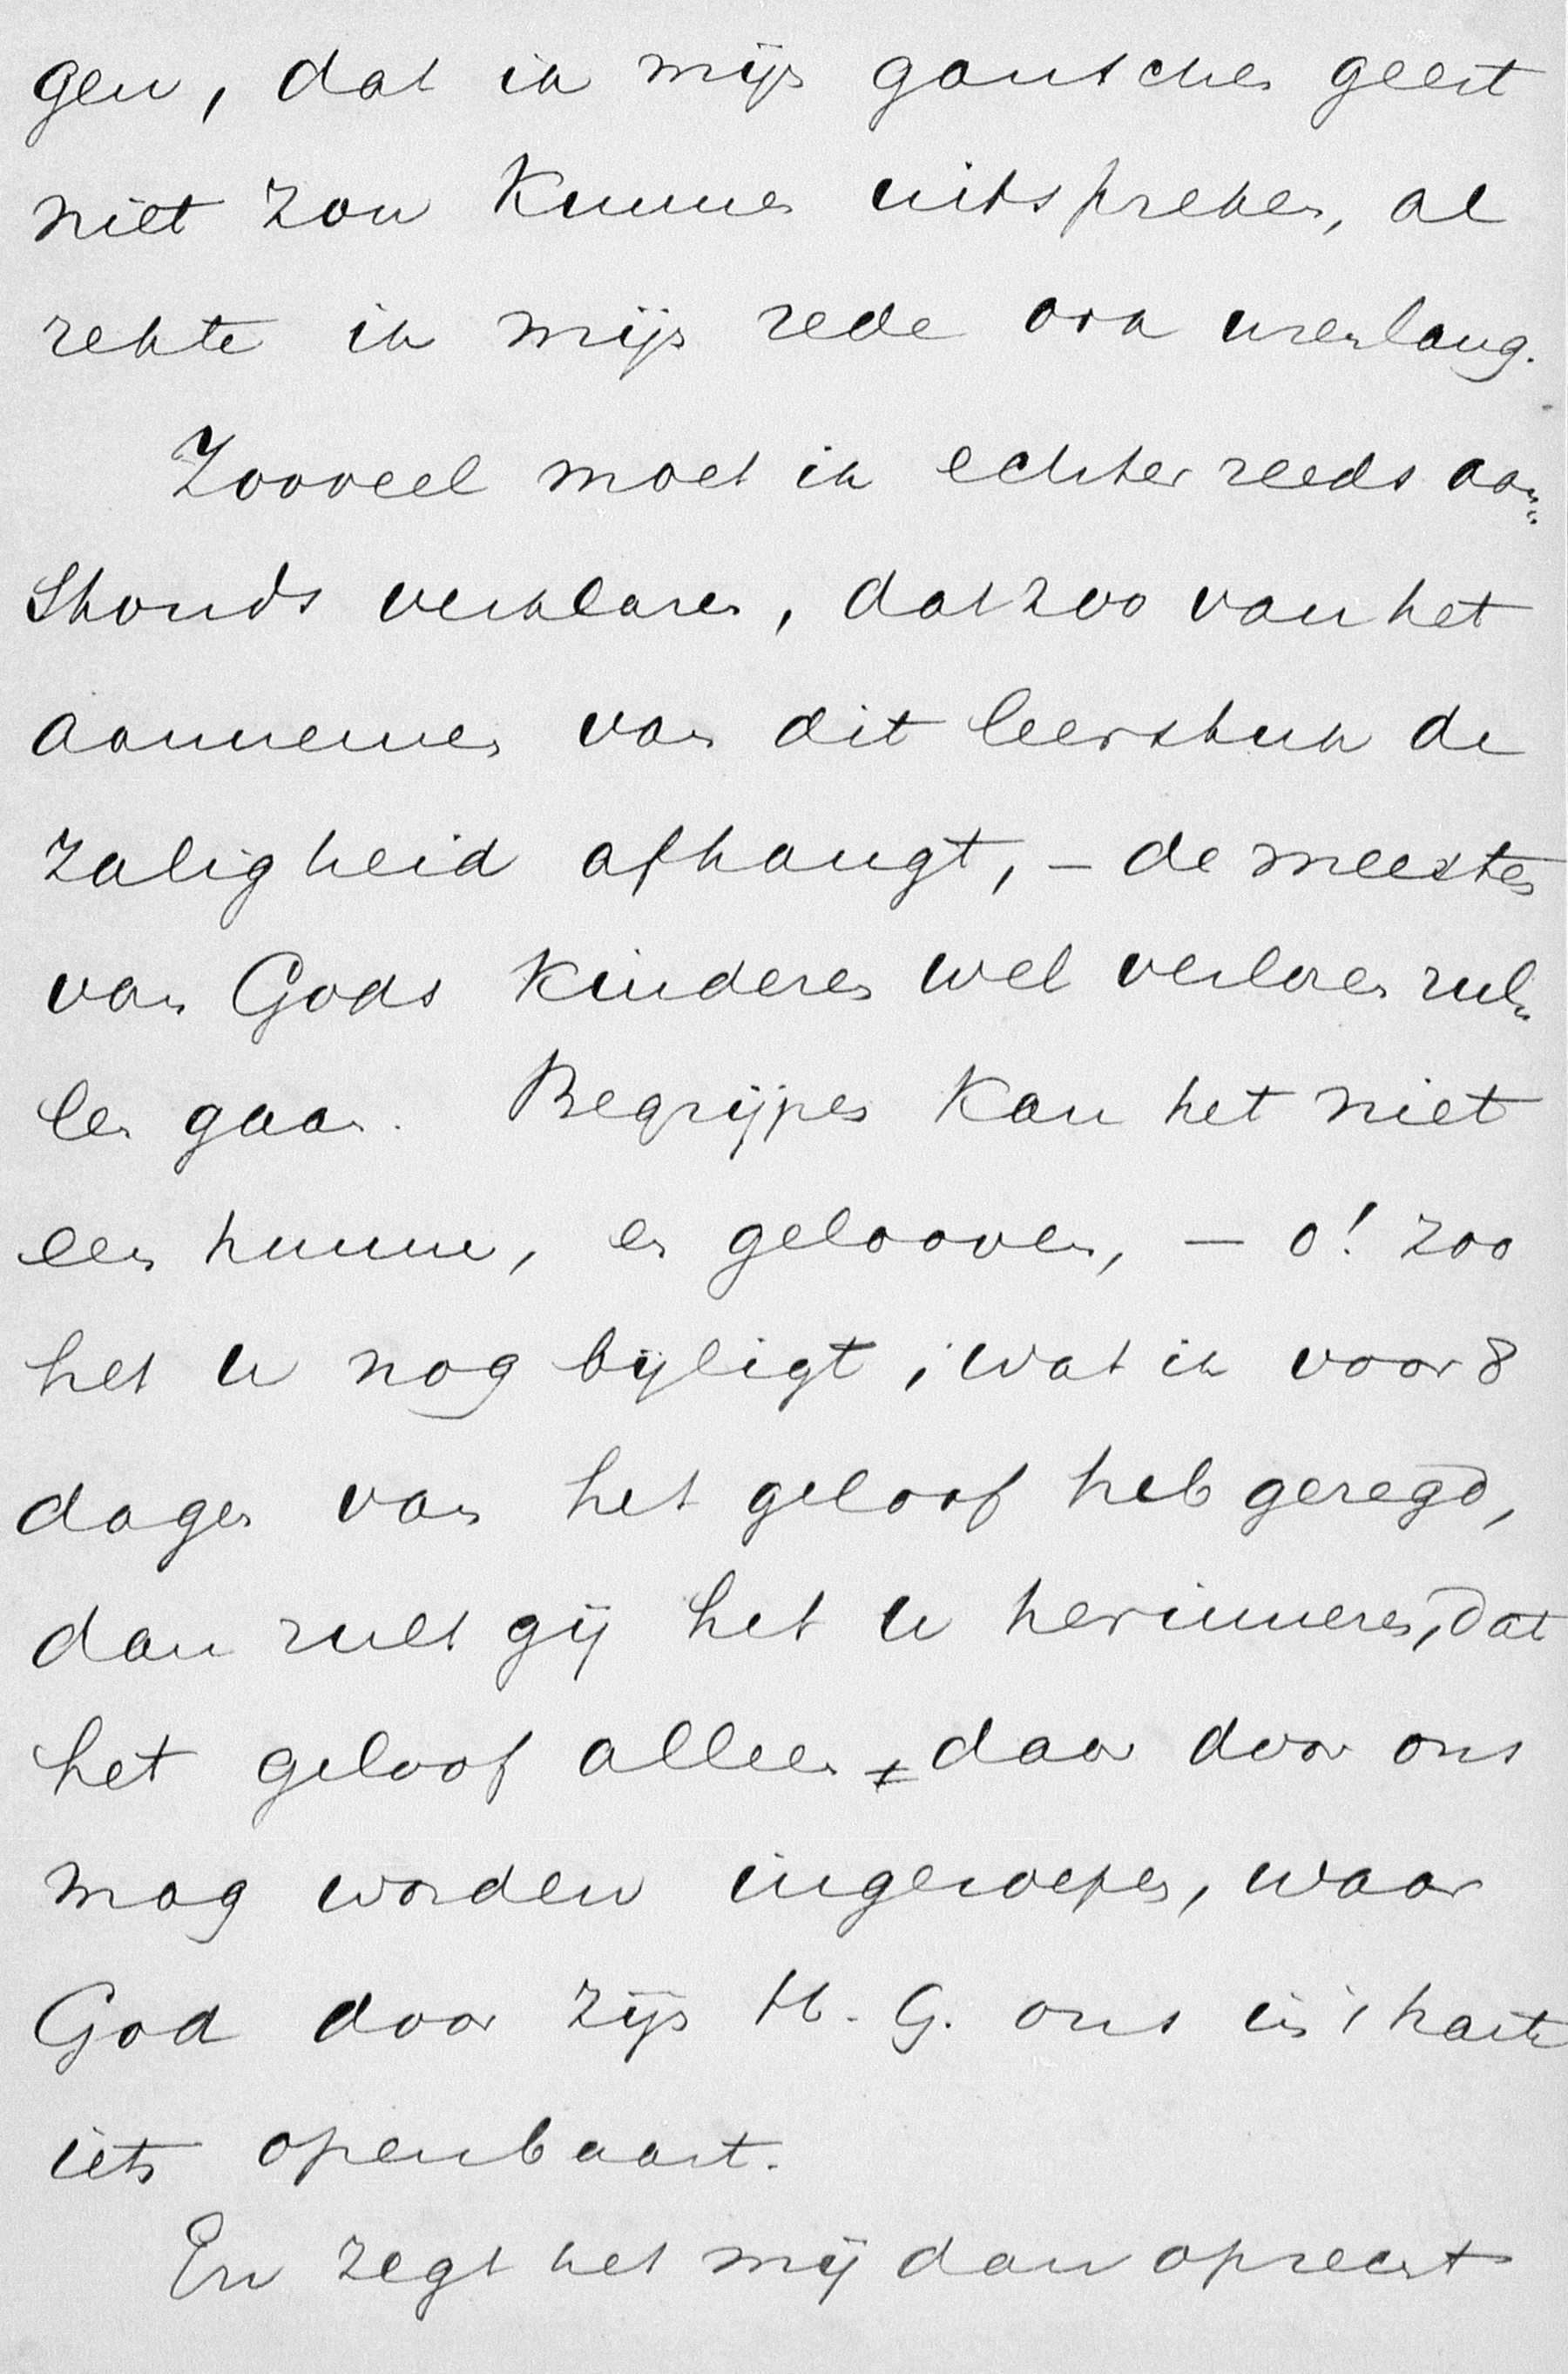 gen, dat ik mijn ganschen geest
niet zou kunnen uitspreken, al
rekte ik mijn rede ook urenlang.
Zooveel moet ik echter reeds aan„
stonds verklaren, dat zoo van het
aannemen van dit leerstuk de
zaligheid afhangt, – de meesten
van Gods kinderen wel verloren zul„
len gaan. Begrijpen kan het niet
een hunner, en gelooven, – o! zoo
het u nog bijligt, wat ik voor 8
dagen van het geloof heb gezegd,
dan zult gij het u herinneren, dat
het geloof alleen daar door ons
mag worden ingeroepen, waar
God door zijn H. G. ons in 't harte
iets openbaart.
En zegt het mij dan oprecht